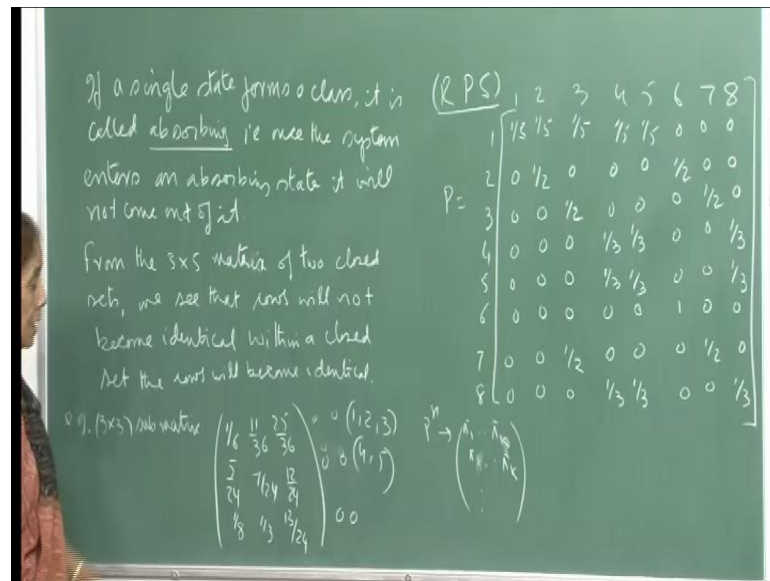 If a single state forms a class, it is
called absorbing i.e once the system
enters an absorbing state it will
not come out of it.
From the 5x5 matrix of two closed
sets, we see that rows will not
become identical within a closed
set the rows will become identical.
e.g. (3x3) submatrix
1/6 11/36 25/36 0 0 (1,2,3)
5/24 7/24 12/24 0 0 (4,5)
1/8 1/3 13/24 0 0
(RPS)
1 2 3 4 5 6 7 8
P=
1 1/5 1/5 1/5 1/5 1/5 0 0 0
2 0 1/2 0 0 0 1/2 0 0
3 0 0 1/2 0 0 0 1/2 0
4 0 0 0 1/3 1/3 0 0 1/3
5 0 0 0 1/3 1/3 0 0 1/3
6 0 0 0 0 0 1 0 0
7 0 0 1/2 0 0 0 1/2 0
8 0 0 0 1/3 1/3 0 0 1/3
Pⁿ →